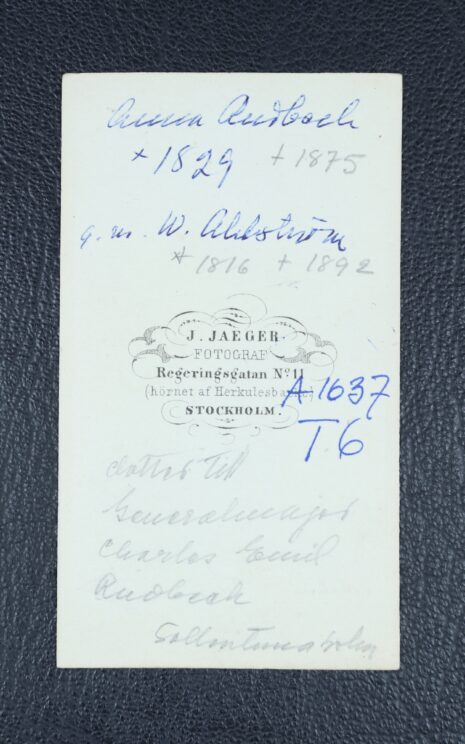 Anna Rudbeck
* 1829 † 1875
g. m. W. Ahlström
* 1816 † 1892
J. JAEGER
FOTOGRAF
Regeringsgatan No 11
(hörnet af Herkulesbacke)
STOCKHOLM.
A 1637
T. 6
dotter till
Generalmajor
Charles Emil
Rudbeck
Sollentunaholm